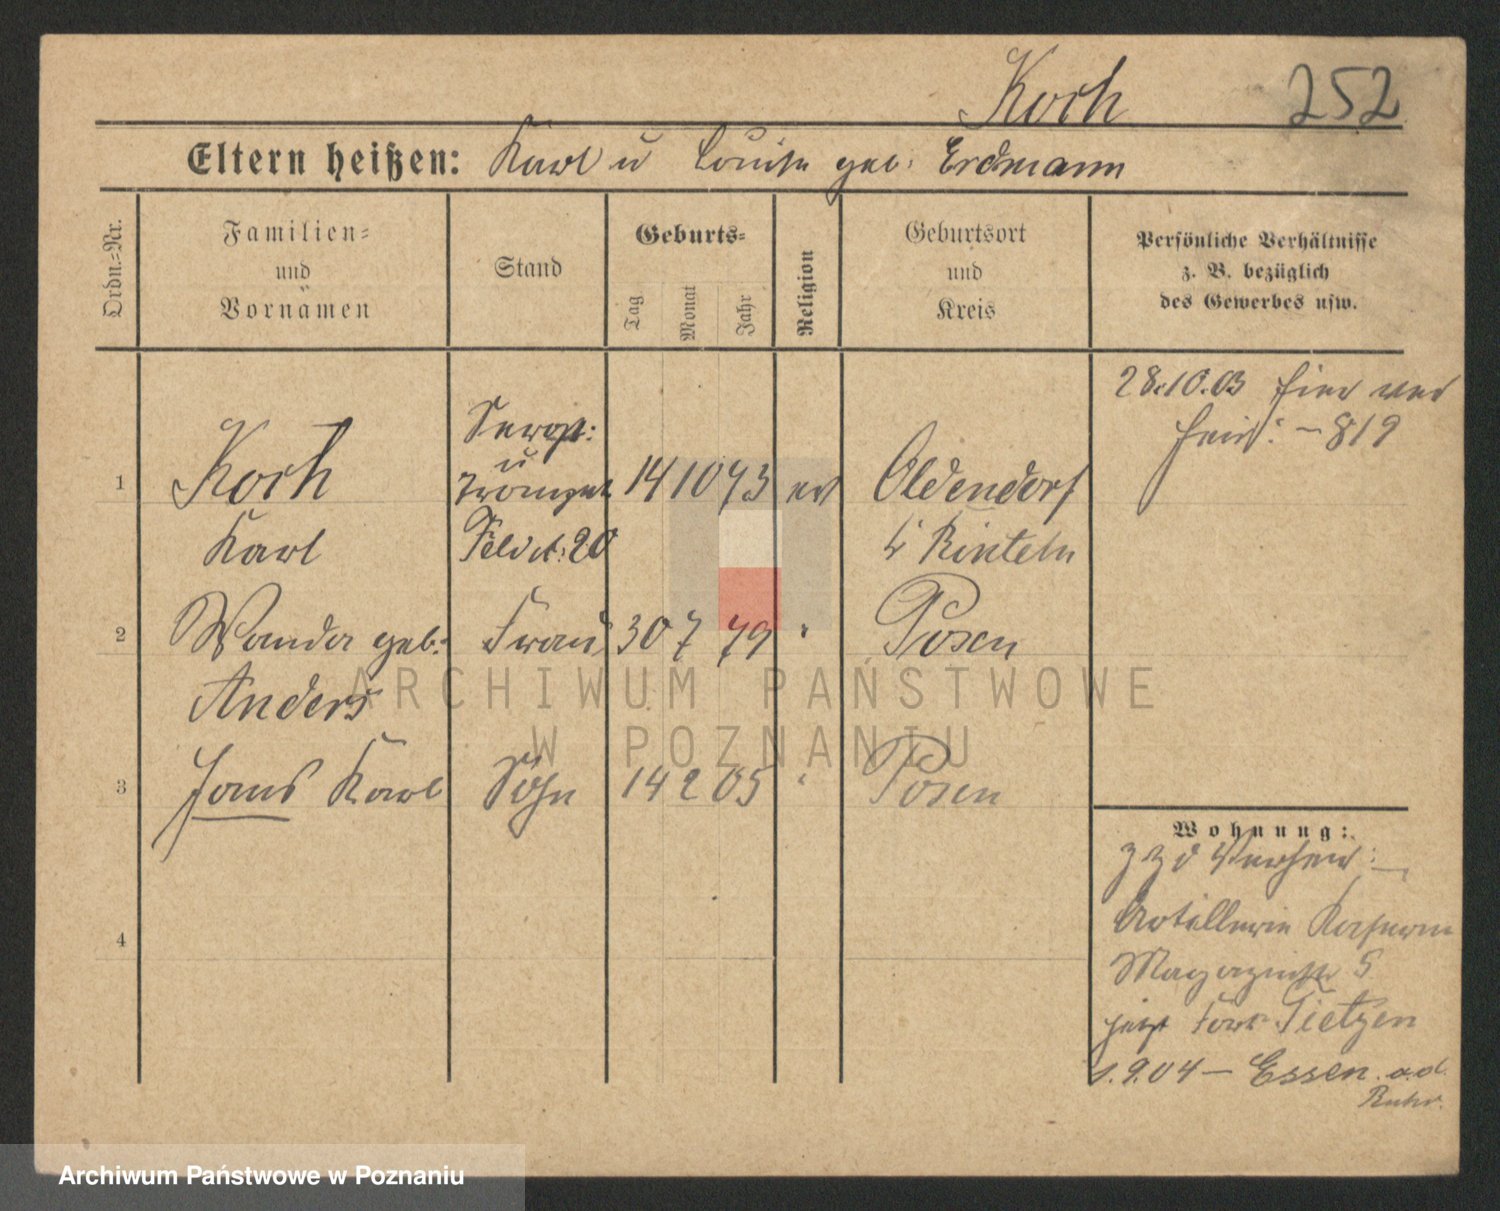 Koch 252
Eltern heißen: Karl u Louise geb: Erdmann
Ordn.-Nr.
Familien-
und
Vornamen
Stand
Geburts-
Tag
Monat
Jahr
Religion
Geburtsort
und
Kreis
Persönliche Verhältnisse
z. B. bezüglich
des Gewerbes usw.
28.10.03 hier ver
heir: - 819
Sergt:
u
1 Koch Trompet 14 10 73 ev Oldendorf
Karl Feld 20 Kr Rinteln
2 Wanda geb: Frau 30 7 79 " Posen
Anders
3 Hans Karl Sohn 14 2 05 " Posen
4
Wohnung:
Artillerie Kaserne
Magazinstr 5
jetzt Fort Tietzen
1.9.04 - Essen a.d.
Ruhr.
ARCHIWUM PAŃSTWOWE
W POZNANIU
Archiwum Państwowe w Poznaniu